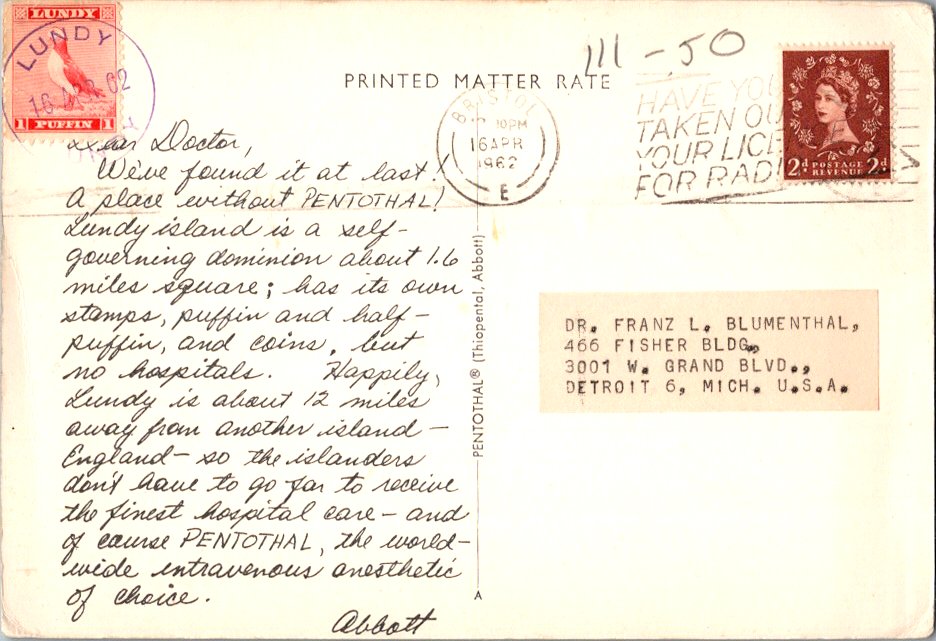 LUNDY
LUNDY
16 62
1 PUFFIN 1
PRINTED MATTER RATE
111-50
BRISTOL
10PM
16 APR
1962
E
HAVE YOU
TAKEN OU
YOUR LICE
FOR RADI
2d POSTAGE 2d
REVENUE
Dear Doctor,
We've found it at last!
A place without PENTOTHAL!
Lundy island is a self-
governing dominion about 1.6
miles square; has its own
stamps, puffin and half-
puffin, and coins, but
no hospitals. Happily,
Lundy is about 12 miles
away from another island -
England - so the islanders
don't have to go far to receive
the finest hospital care - and
of course PENTOTHAL, the world-
wide intravenous anesthetic
of choice.
Abbott
PENTOTHAL® (Thiopental, Abbott)
A
DR. FRANZ L. BLUMENTHAL,
466 FISHER BLDG.,
3001 W. GRAND BLVD.,
DETROIT 6, MICH. U.S.A.